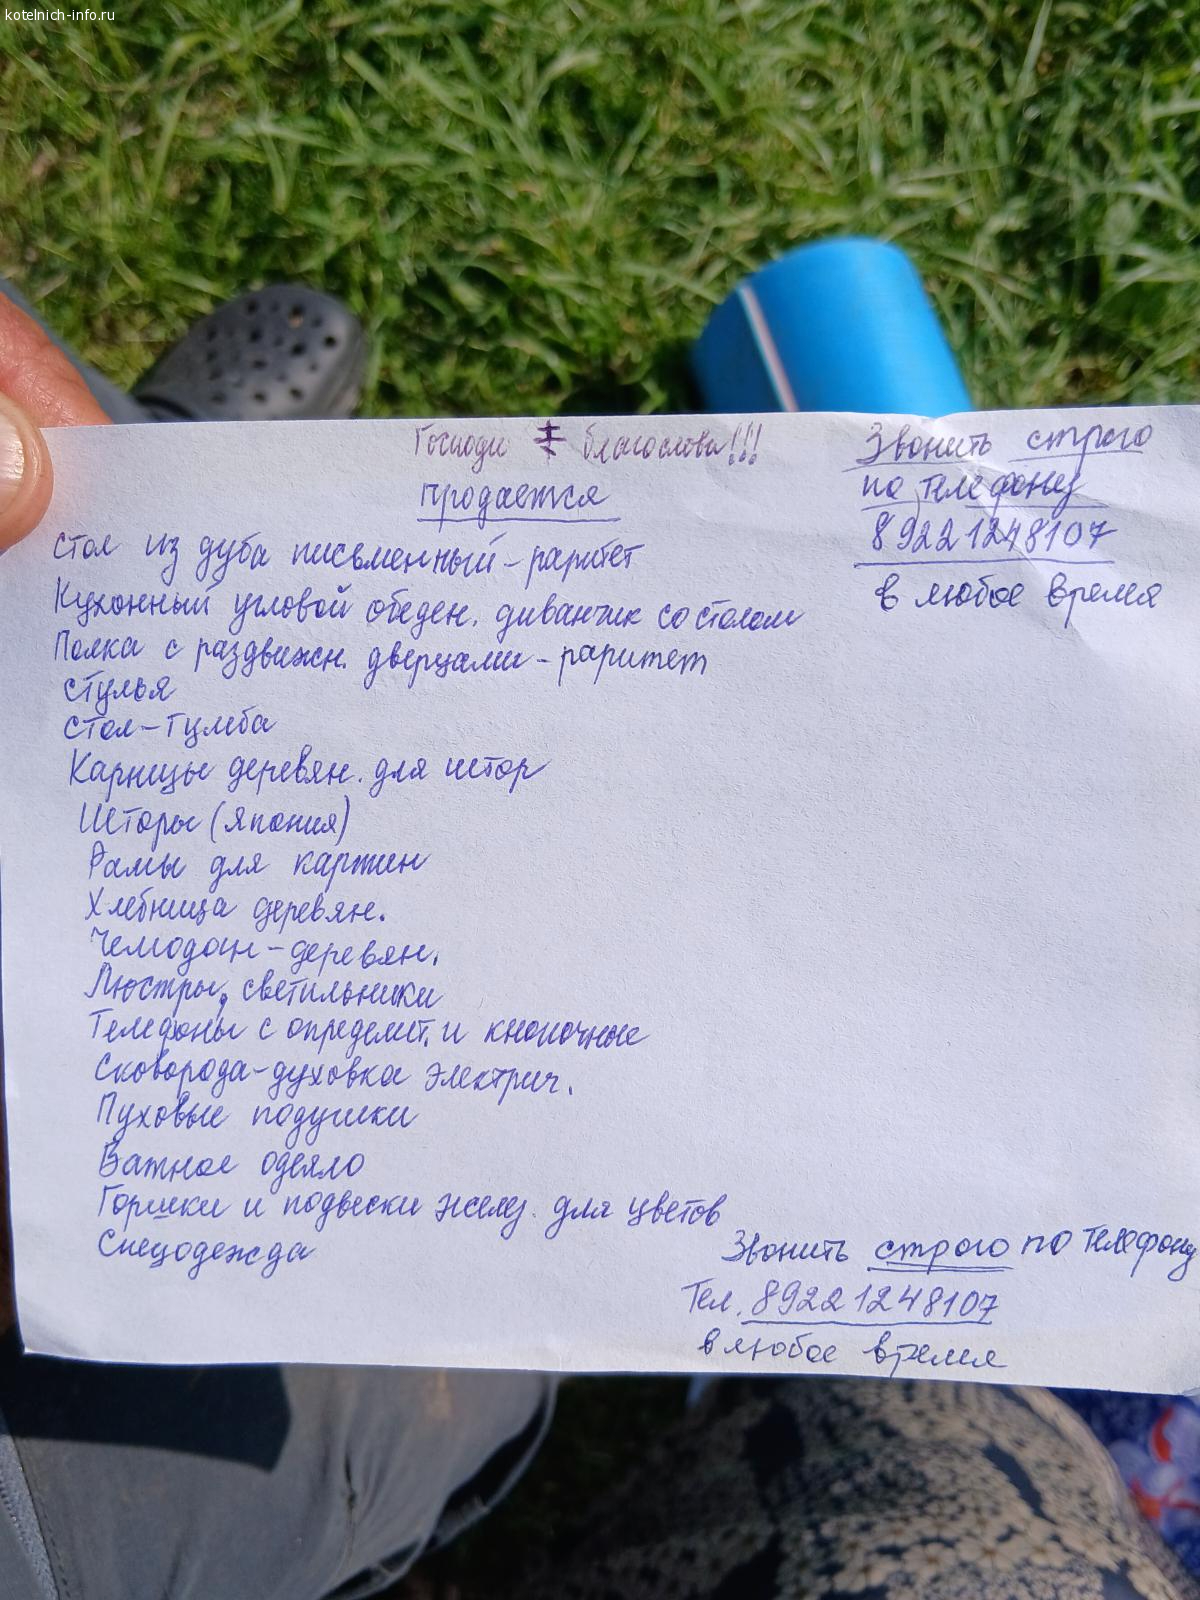 kotelnich-info.ru
Господи благослови!!!
Продается
Звонить строго
по телефону
89221248107
в любое время
Стол из дуба письменный - раритет
Кухонный угловой обеден. диванчик со столом
Полка с раздвижн. дверцами - раритет
Стулья
Стол-тумба
Карнизы деревян. для штор
Шторы (Япония)
Рамы для картин
Хлебница деревян.
Чемодан - деревян.
Люстры, светильники
Телефоны с определит. и кнопочные
Сковорода-духовка электрич.
Пуховые подушки
Ватное одеяло
Горшки и подвески желез. для цветов
Спецодежда
Звонить строго по телефону
Тел. 89221248107
в любое время